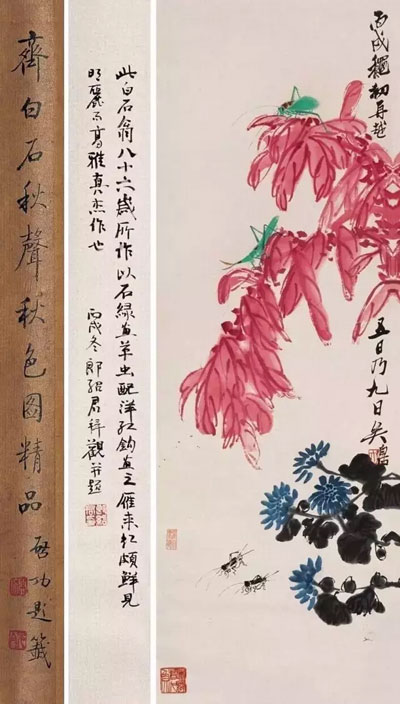 丙戌穐初再越
五日乃九日矣白石
此白石翁八十六歲所作以石緑畫草虫配洋紅鈎畫之雁来紅頗鮮見
明麗而高雅真杰作也
丙戌冬郎紹君拜觀并題
齊白石秋聲秋色圖精品
啟功題籤